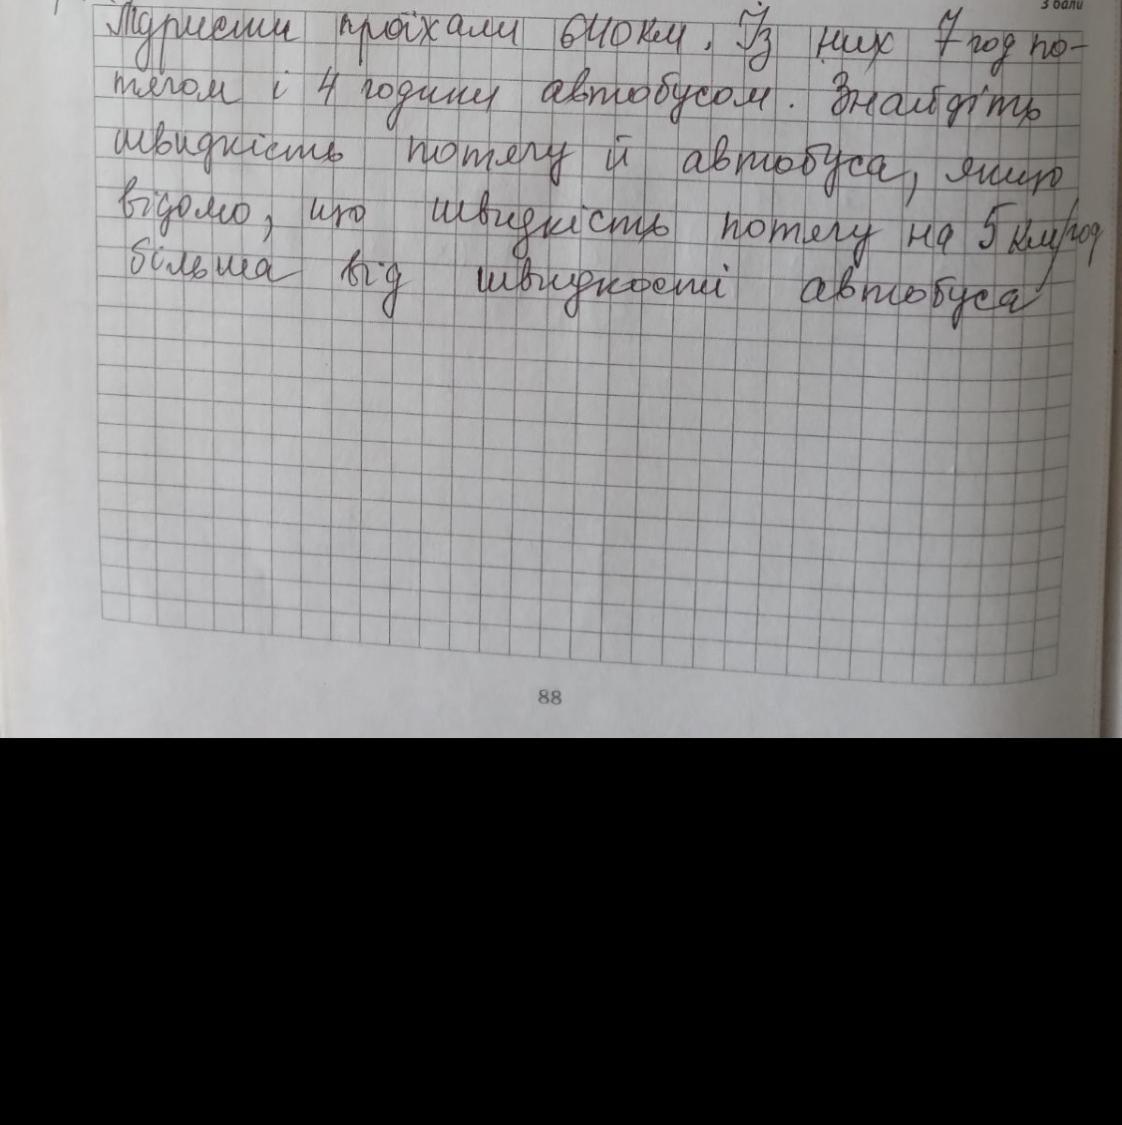 3 бали
Туристи проїхали 640км. Із них 7 год по-
тягом і 4 години автобусом. Знайдіть
швидкість потягу й автобуса, якщо
відомо, що швидкість потягу на 5 км/год
більша від швидкості автобуса
88